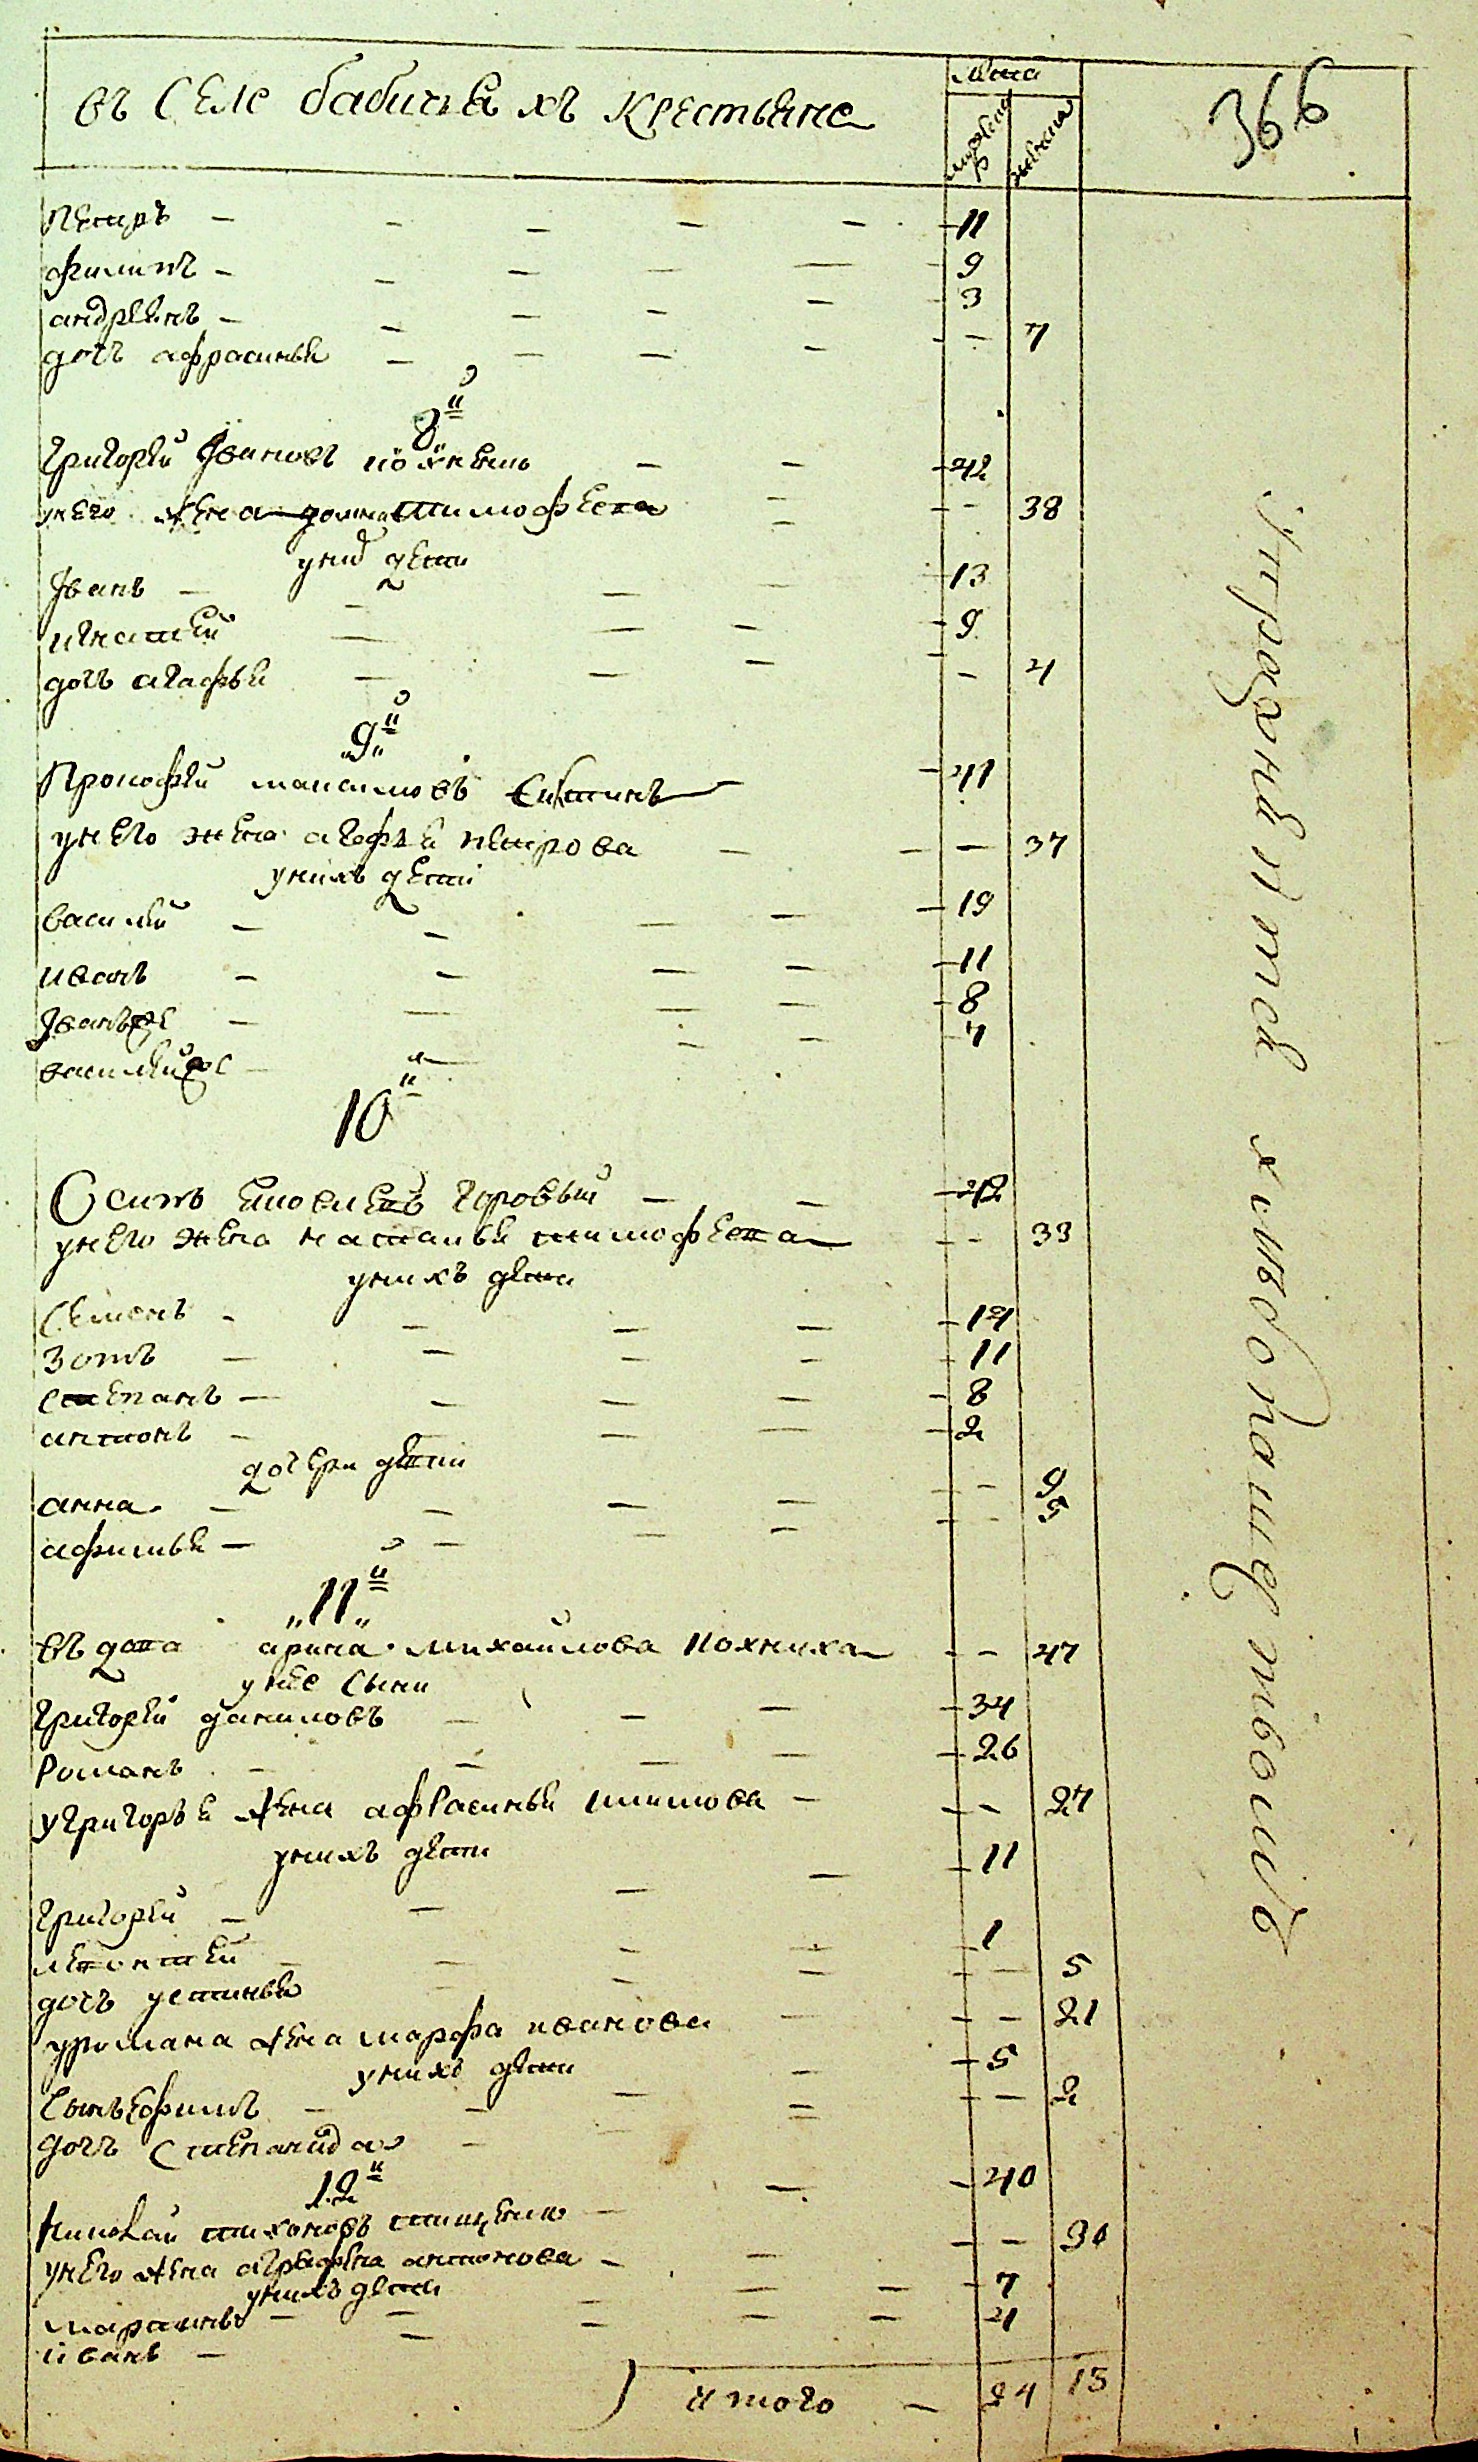 въ селе бабичевахъ крестьяне
Лѣта
мужеска женска
366
Петръ 11
филипъ 9
андреянъ 3
дочь афросинья 7
8й
Григорей Ивановъ 42
у него жена домна тимофеева 38
у них дети
Иванъ 13
игнатей 9
дочь агафья 4
9й
Прокофей максимовъ 41
у него жена агафья петрова 37
у нихъ дети
василей 19
иванъ 11
Иванъ же 8
василей же 4
10й
Осипъ 42
у него жена наталья тимофеева 33
у нихъ дети
Семенъ 14
Зотъ 11
степанъ 8
антонъ 2
дочери дети
анна 9
афимья 5
11й
вдова арина михайлова похниха 47
у нее сыны
Григорей даниловъ 34
Романъ 26
у григорья жена афросинья 27
у нихъ дети
Григорей 11
леонтей 1
дочь устинья 5
у романа жена марфа иванова 21
у нихъ дети
сынъ ефимъ 5
дочь степанида 2
12й
Николай тихоновъ 40
у него жена агрофена антонова 30
у нихъ дети
мартинъ 7
иванъ 4
итого 24 15